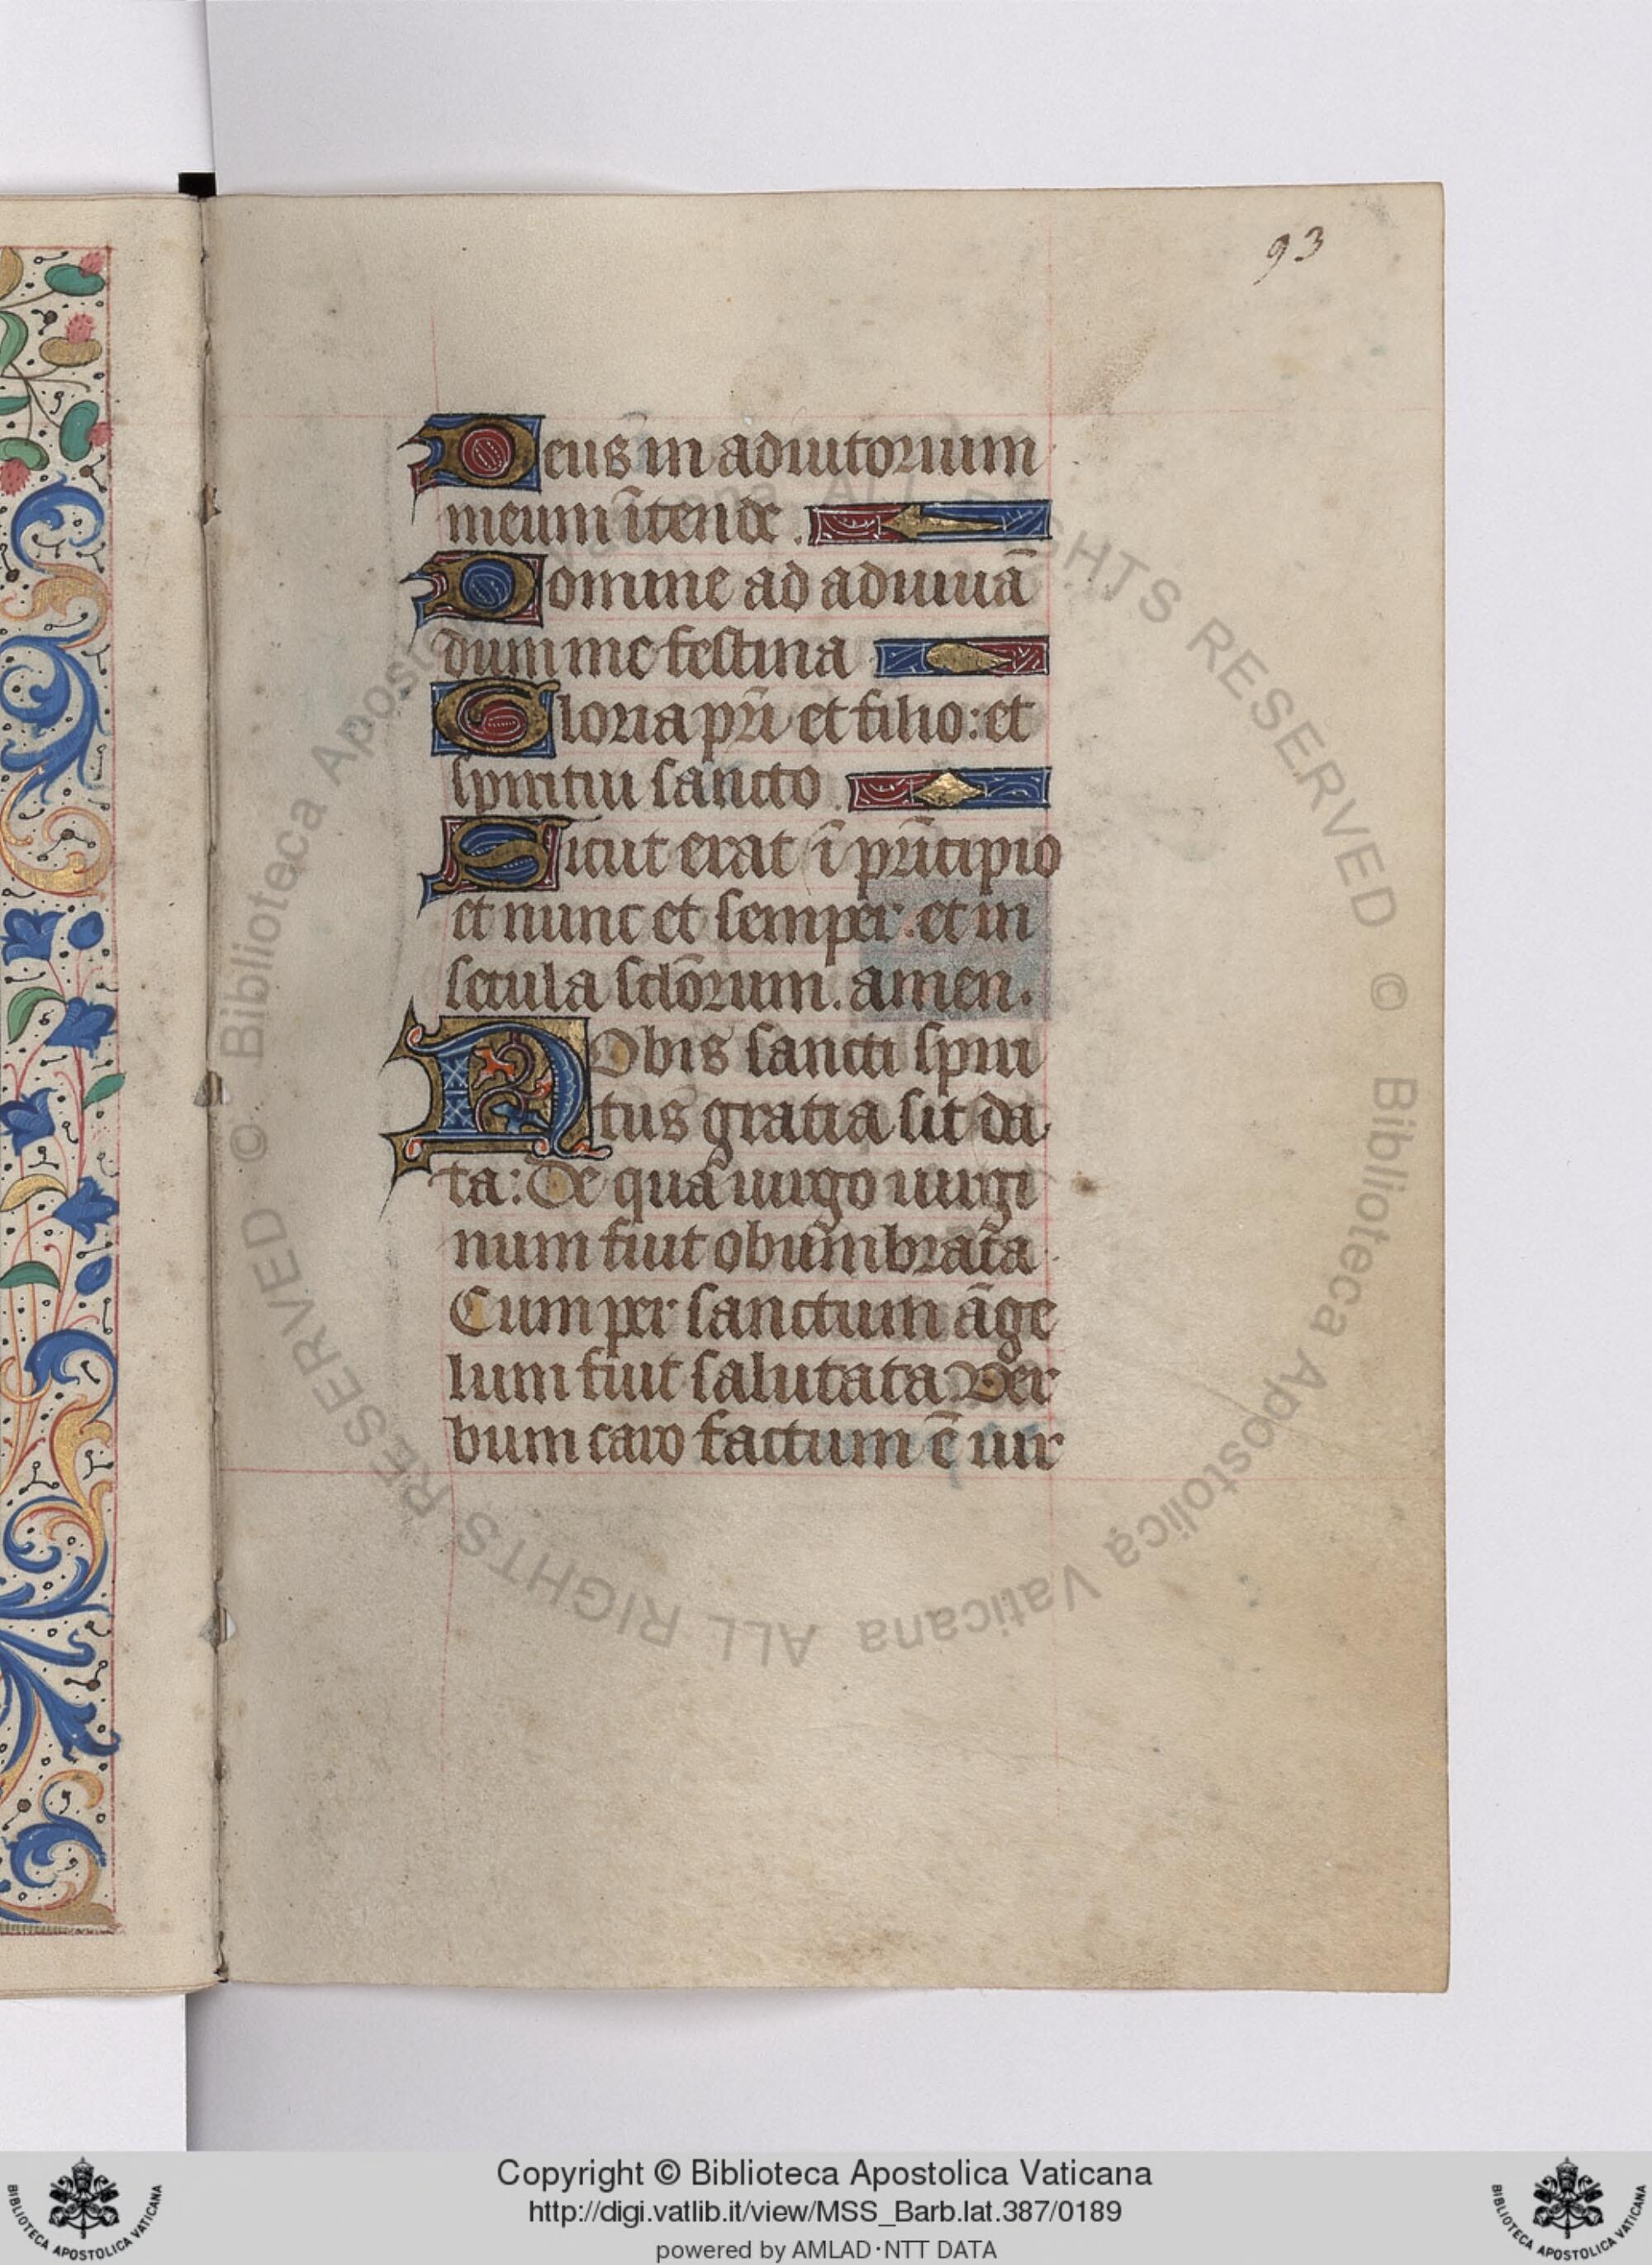 93
Deus in adiutorium
meum ītende .
Domine ad adiuuā
dum me festina
Gloria pr̄i et filio: et
spiritui sancto .
Sicut erat ī prīcipio
et nunc et semper . et in
secula sclōrum . amen .
Nobis sancti spiri
tus gratia sit da
ta: De qua uirgo uirgi
num fuit obūmbrat̄a
Cum per sanctum āge
lum fuit salutata Ver
bum caro factum ē uir
© Biblioteca Apostolica Vaticana ALL RIGHTS RESERVED © Biblioteca Apostolica Vaticana ALL RIGHTS RESERVED
BIBLIOTECA APOSTOLICA VATICANA
Copyright © Biblioteca Apostolica Vaticana
http://digi.vatlib.it/view/MSS_Barb.lat.387/0189
powered by AMLAD·NTT DATA
BIBLIOTECA APOSTOLICA VATICANA